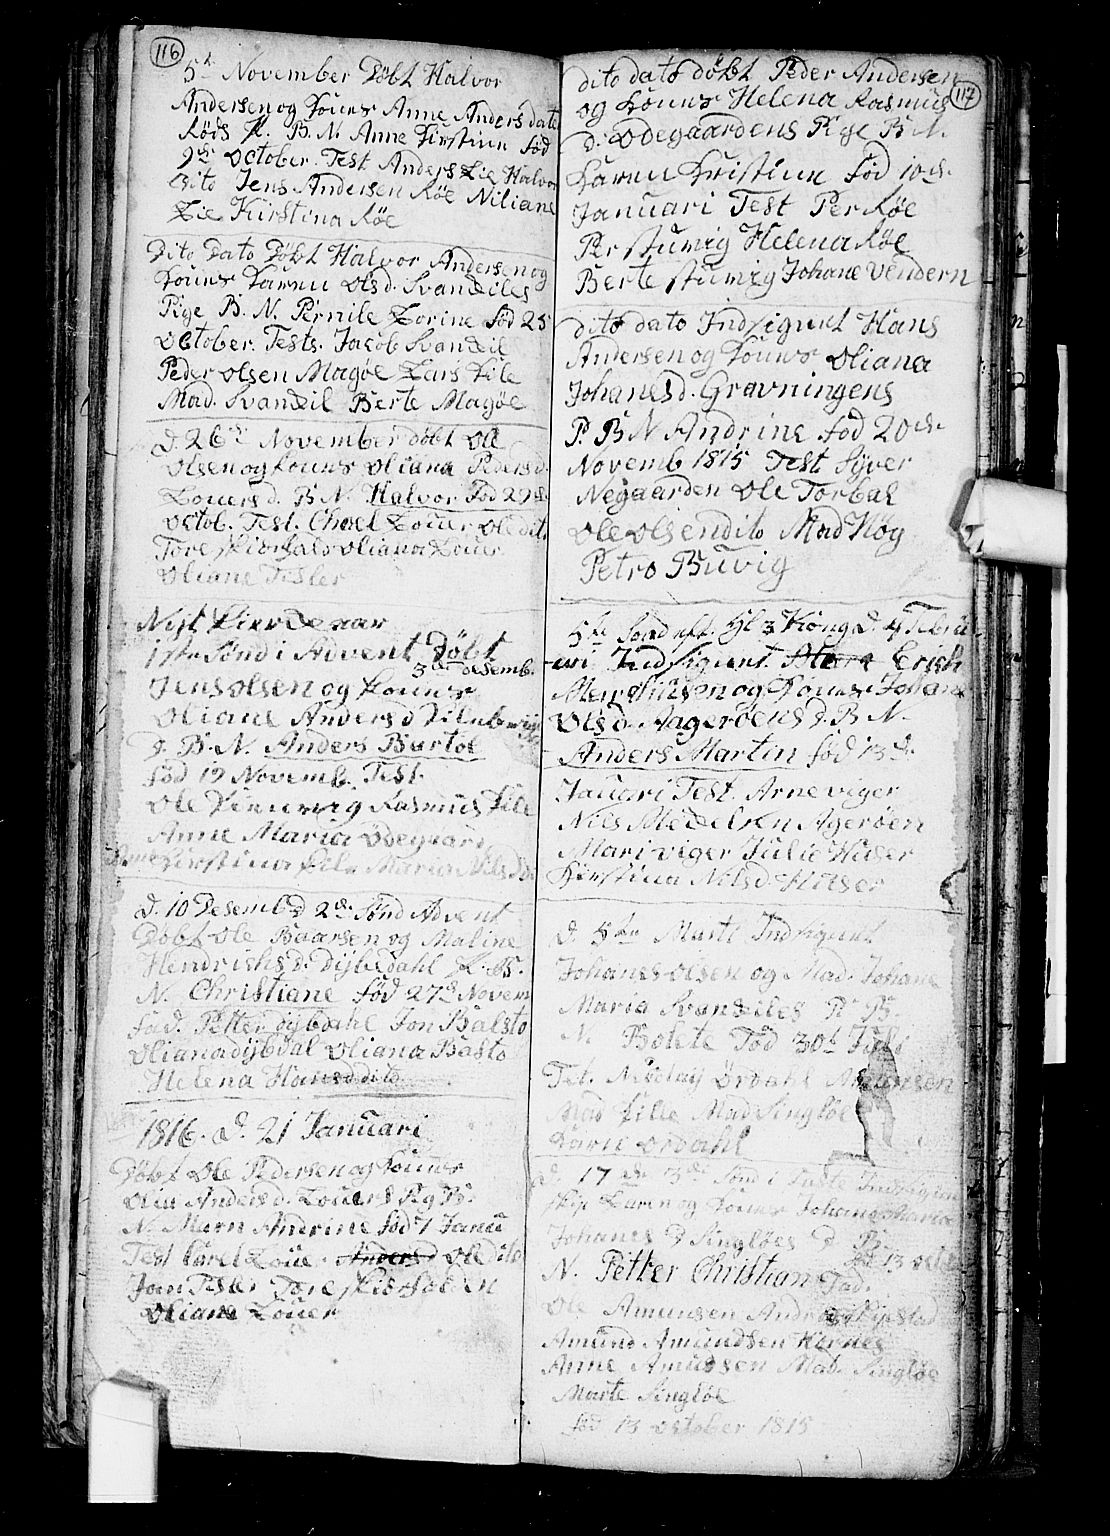 116
5t November Döbt Halvor
Andersen og Konnes Anne Anders dater
Röds P. B. N. Anne Kirstine föd
9de October. Test Anders Lie Halvor
dito Jens Andersen Röe Niliane
Lie Kirstina Röe
Dito Dato Döbt Halvor Andersen og
Konnes Karen Olsd. Svandiles
Pige B. N. Pernile Lorine föd 25
October. Tests. Jacob Svandil
Peder Olsen Magöe Lars Kile
Mad. Svandil Berte Magöe
d. 26de November döbt Ole
Olsen og Konnes Oliana Peders d.
Louers d. B. N. Halvor föd 29de
Octob. Test. Louer Ole dito
Tore Oliana Louer
Oliane Tesler
Nyt Kirke aar
1ste Sönd i Advent Döbt
3de Desemb.
Jens Olsen og Konnes
Oliane Anders d
d. B. N. Anders Bartoe
föd 19 Novemb. Test.
Ole Rasmus Kile
Anne Maria Ödegaard
Kirstina Kile Maria Nils
d. 10 Desemb d 2de Sönd Advent
Döbt Ole Baarsen og Maline
Hendrichs d. Dijbedahl P. B.
N. Christiane föd 27d Novem
fad. Petter dijbdahl Jon Balsto
Oliana dijbdal Oliana Basto
Helena Hansd dito
1816. d. 21 Januari
Döbt Ole Pedersen og Konnes
Olia Anders d. Louers Pig B.
N. Maren Andrine föd 7 Janu
Test Carel Loue Anders Ole dito
Jan Tesler Tore
Oliane Louer
117
dito dato döbt Peder Andersen
og Konnes Helena Rasmus
d. Ödegaardens Pige B N.
Karen Kristine föd 10de
Januari Test Per Röe
Per Stuvig Helena Röe
Berte Stuvig Johane Vendern
dito dato Indsignet Hans
Andersen og Konnes Oliana
Johanes d. Gravningens
P. B N Andrine föd 20de
Novemb 1815 Test Syver
Negaarden Ole Torbal
Ole Olsen dito Mad Höy
Petro Buvig
5te Sönd eft. Hl 3 Kong d. 4 Febru
-ari Indsignet Erich
og Konnes Johane
Olsd. Aageröens d. B N.
Anders Martin föd 13 d.
Januari Test Arne viger
Nils Ageröen
Mari viger Julie Huser
Kirstina Nilsd. Huser
d. 5te Marti Indsignet
Johanes Olsen og Mad. Johane
Maria Svandiles P. B.
N. Bolete Föd 30t Juli
Tet. Nicolay Ördahl Amunsen
Mad Kile Mad Singlöe
Karn Ördahl
d. 17de 3de Sönd i Faste Indsignet
Larn og Konnes Johana Maria
Johanes d Singlöes d B.
föd 13 octob
N. Petter Christian Fad.
Ole Amunsen Andr
Amund Amundsen Hernes
Anne Amudsen Mad. Singlöe
Marte Singlöe
föd 13 October 1815